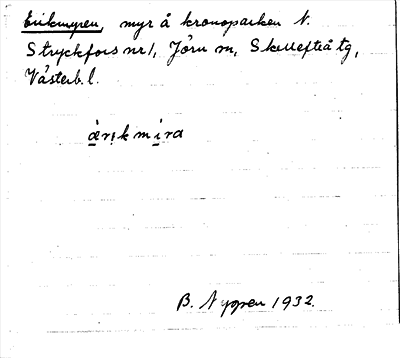 Erikmyren, myr å kronoparken N.
Stryckfors nr 1, Jörn sn, Skellefteå tg,
Västerb. l.
ὰrịkmịra
B. Nygren 1932.